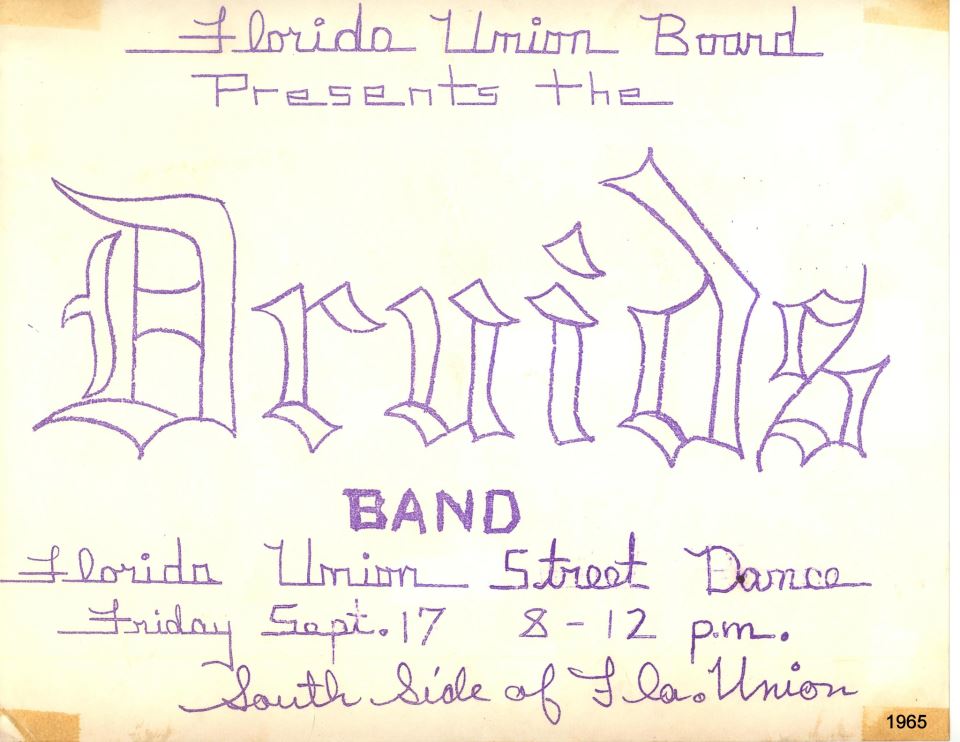 Florida Union Board
Presents the
Druids
BAND
Florida Union Street Dance
Friday Sept. 17 8-12 p.m.
South Side of Fla. Union
1965